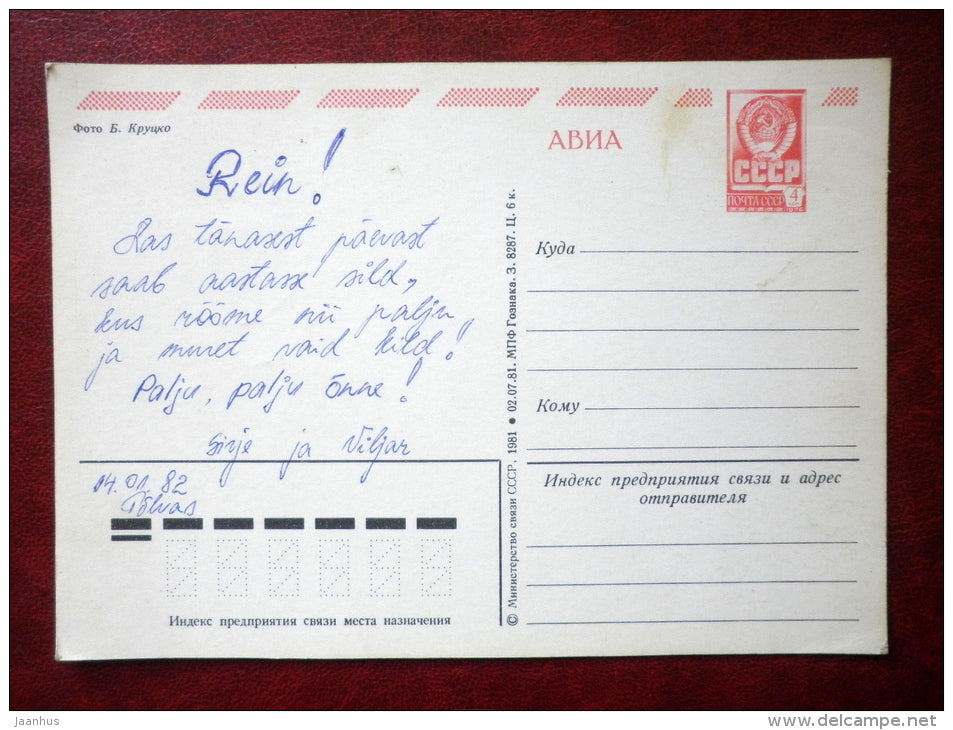 Фото Б. Круцко
АВИА
СССР
ПОЧТА СССР 4
Rein!
Las tänasest päevast
saab aastasse sild,
kus rõõme nii palju,
ja muret vaid kild!
Palju, palju õnne!
Sirje ja Viljar
14.01.82
Põlvas
Индекс предприятия связи места назначения
© Министерство связи СССР, 1981 ● 02.07.81. МПФ Гознака. З. 8287. Ц. 6 к.
Куда
Кому
Индекс предприятия связи и адрес
отправителя
Jaanhus
delcampe.net